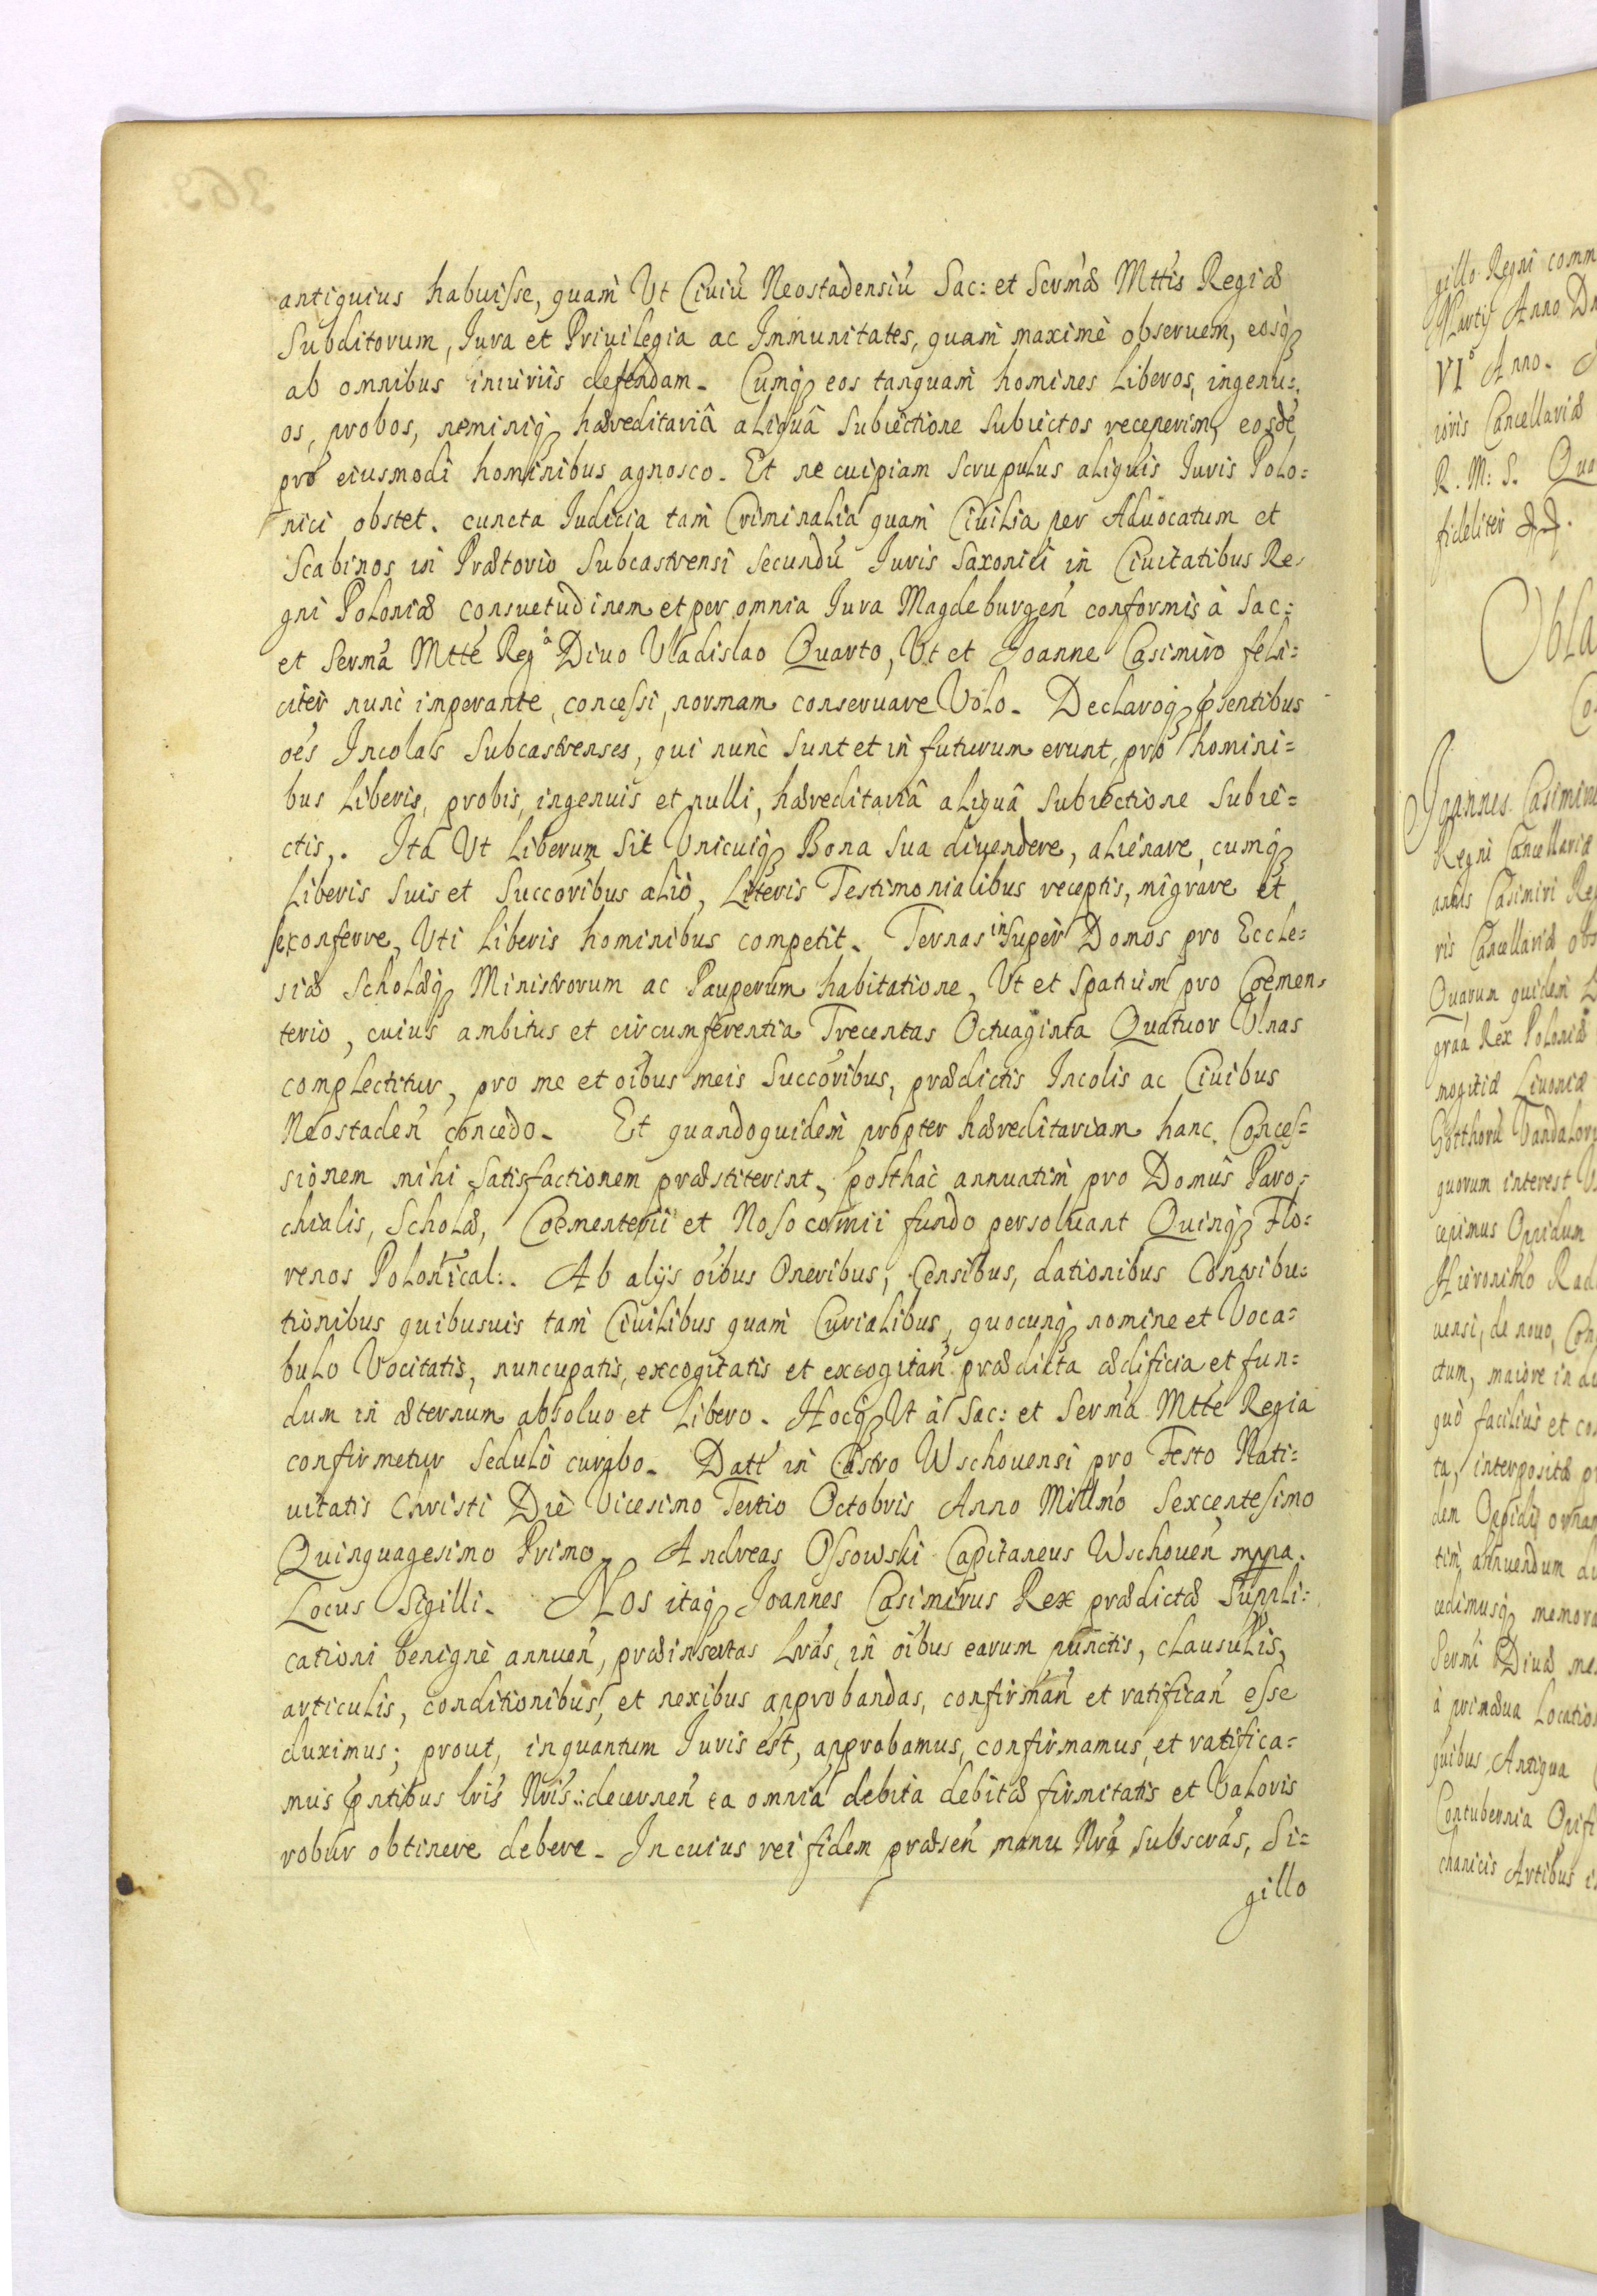 antiquius habuisse, quam Ut Civiu Neostadensiu Sac: et Sermæ Mttis Regiæ
Subditorum, Iura et Privilegia ac Immunitates, quam maximè observem, eosq
ab omnibus iniuriis defendam. Cumq eos tanquam homines Liberos, ingenu:
os, probos, neminiq hæreditariâ aliquâ Subiectione Subiectos receperim, eosdé
pro eiusmodi hominibus agnosco. Et ne cuipiam Scrupulus aliquis Iuris Polo:
nici obstet. cuncta Iudicia tam Criminalia quam Civilia per Advocatum et
Scabinos in Prætorio Subcastrensi Secundu Iuris Saxonici in Civitatibus Re:
gni Poloniæ consuetudinem et per omnia Iura Magdeburgen conformis à Sac:
et Serma Mtte Regâ Divo Uladislao Quarto, Ut et Joanne Casimiro feli:
citer nunc imperante, concessi, normam conservare Volo. Declaroq psentibus
oés Incolas Subcastrenses, qui nunc Sunt et in futurum erunt, pro homini=
bus Liberis, probis, ingenuis et nulli, hæreditariâ aliquâ Subiectione Subie=
ctis,. Ita Ut Liberum Sit Unicuiq Bona Sua divendere, alienare, cumq
Liberis Suis et Succoribus aliò, Literis Testimonialibus receptis, migrare et
exonferre, Uti Liberis hominibus competit. Ternas inSuper Domos pro Eccle:
siæ Scholæq Ministrorum ac Pauperum habitatione, Ut et Spatium pro Coemen:
terio, cuius ambitus et circumferentia Trecentas Octuaginta Quatuor Ulnas
complectitur, pro me et oibus meis Succoribus, prædictis Incolis ac Civibus
Neostaden concedo. Et quandoquidem propter hæreditariam hanc Conces=
sionem mihi Satisfactionem præstiterint, posthac annuatim pro Domus Paro:
chialis, Scholæ, Coementerii et Nosocomii fundo persolvant Quinq Flo:
renos Polonical:. Ab alijs oibus Oneribus, Censibus, dationibus Contribu:
tionibus quibusvis tam Civilibus quam Curialibus, quocunq nomine et Voca=
bulo Vocitatis, nuncupatis, excogitatis et excogitan prædicta ædificia et fun=
dum in æternum absolvo et Libero. Hocq Ut à Sac: et Serma Mtte Regia
confirmetur Sedulò curabo. Datt in Castro Wschovensi pro Festo Nati:
vitatis Christi Die Vicesimo Tertio Octobris Anno Millmo Sexcentesimo
Quinquagesimo Primo. Andreas Ossowski Capitaneus Wschoven mppa.
Locus Sigilli. NOS itaq Joannes Casimirus Rex prædictæ Suppli:
cationi benignè annuen, præinsertas Lras, in oibus earum punctis, clausulis,
articulis, conditionibus, et nexibus approbandas, confirman et ratifican esse
duximus; prout, inquantum Iuris est, approbamus, confirmamus, et ratifica=
mus pntibus lris Nris: decernen ea omnia debita debitæ firmitatis et Valoris
robur obtinere debere. In cuius rei fidem præsen manu Nrâ subscras, Si=
gillo
gillo Regni comm
Martij Anno Dn
VI° Anno.
ioris Cancellariæ
R. M: S. Qua
fideliter
Obla
Co
Joannes Casimiru
Regni Cancellariæ
annis Casimiri Re
ris Cancellariæ ob
Quarum quidem
graa Rex Poloniæ
mogitiæ Livoniæ
Gotthoru Vandaloru
quorum interest
cepimus Oppidum
Hieronimo Rad
vensi, de novo, Con
ctum, maiore in
quò facilius et co
ta, interposita p
dem Oppidi ornam
tim annuendum
cedimusq memora
Sermi Divæ me
à primæva Locatio
quibus Antiqua
Contubernia Opifi
chanicis Artibus